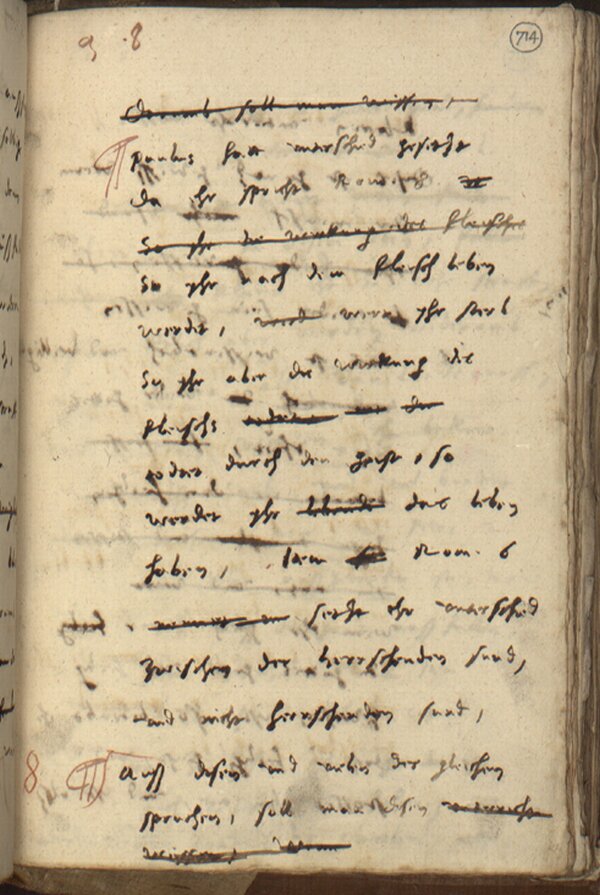 9 . 8
714
Darumb soll man wissen,
Paulus hatt unterschid gesetzt
da ehr spricht
So yhr die wirkung des fleisches
So yhr nach dem fleisch leben
werdet, werdt yhr sterb
So yhr aber die wirkung des
fleischs
todtet durch den geist, so
werdet yhr das leben
haben, Item Rom. 6
setzt ehr unterschid
zwischen der herrschenden sund,
und nicht herrschenden sund,
8 Auss disen und der gleichen
spruchen, soll man disen
wissen,